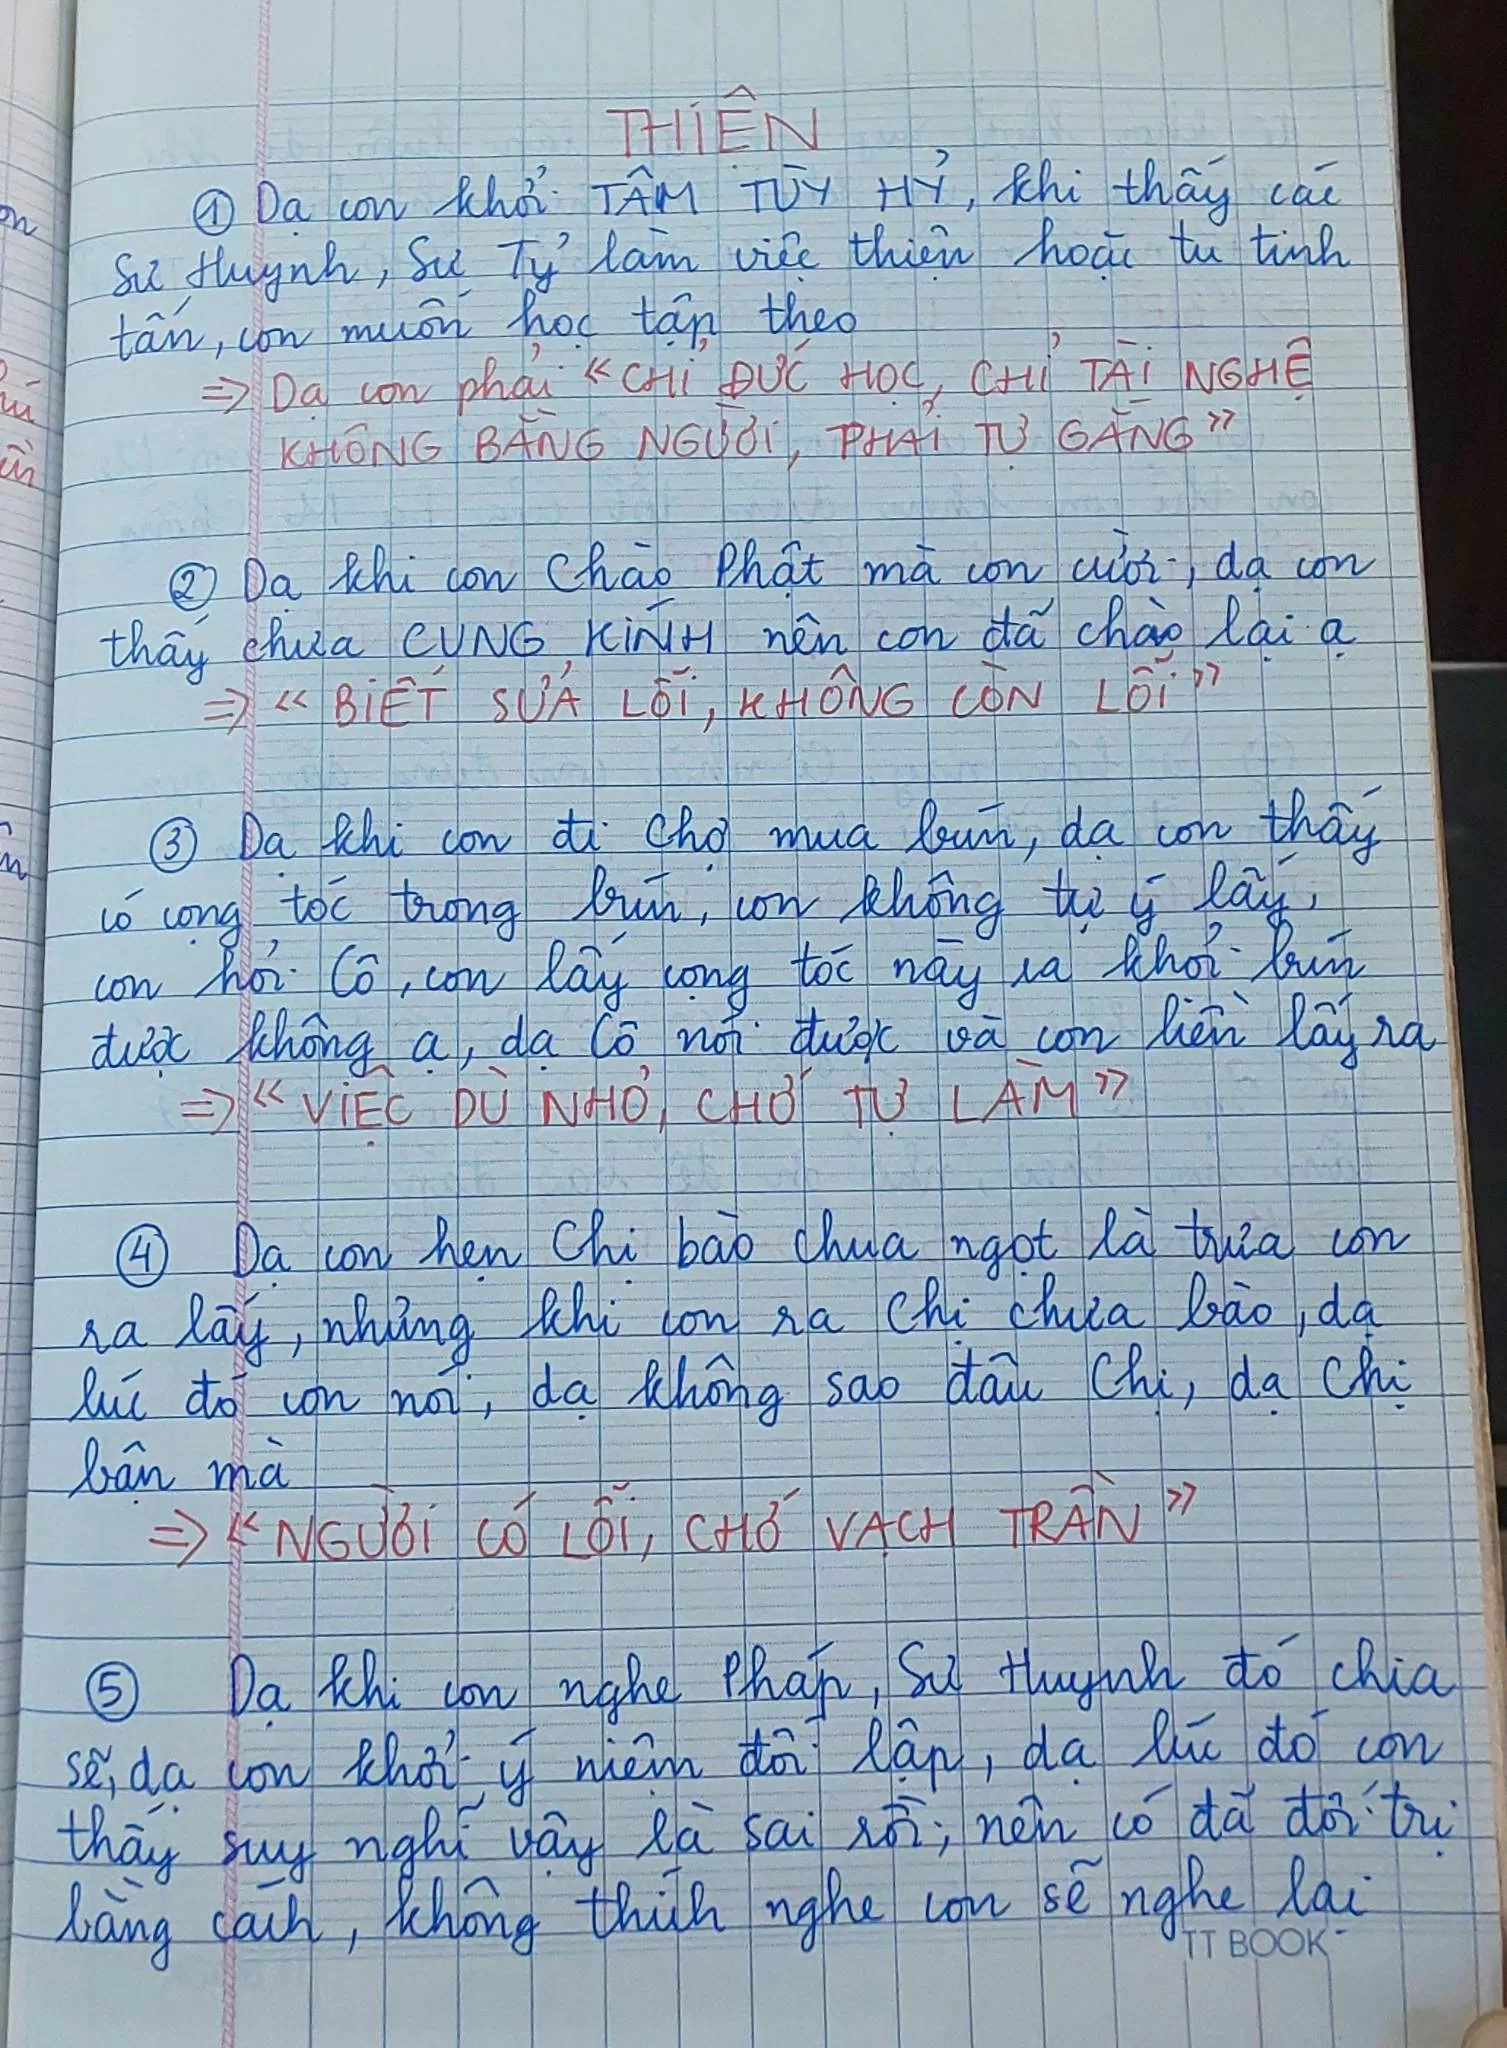 THIỆN
① Dạ con khởi TÂM TÙY HỶ, khi thấy các
Sư Huynh, Sư Tỷ làm việc thiện hoặc tu tinh
tấn, con muốn học tập theo
=> Dạ con phải "CHỈ ĐỨC HỌC, CHỈ TÀI NGHỆ
KHÔNG BẰNG NGƯỜI, PHẢI TỰ GẮNG"
② Dạ khi con Chào Phật mà con cười, dạ con
thấy chưa CUNG KÍNH nên con đã chào lại ạ
=> "BIẾT SỬA LỖI, KHÔNG CÒN LỖI"
③ Dạ khi con đi Chợ mua bún, dạ con thấy
có cọng tóc trong bún, con không tự ý lấy,
con hỏi Cô, con lấy cọng tóc này ra khỏi bún
được không ạ, dạ Cô nói được và con liền lấy ra
=> "VIỆC DÙ NHỎ, CHỚ TỰ LÀM"
④ Dạ con hẹn Chị bào chua ngọt là trưa con
ra lấy, nhưng khi con ra Chị chưa bào, dạ
lúc đó con nói, dạ không sao đâu Chị, dạ Chị
bận mà
=> "NGƯỜI CÓ LỖI, CHỚ VẠCH TRẦN"
⑤ Dạ khi con nghe Pháp, Sư Huynh đó chia
sẽ, dạ con khởi ý niệm đối lập, dạ lúc đó con
thấy suy nghĩ vậy là sai rồi, nên có đã đối trị
bằng cách, không thích nghe con sẽ nghe lại
TT BOOK